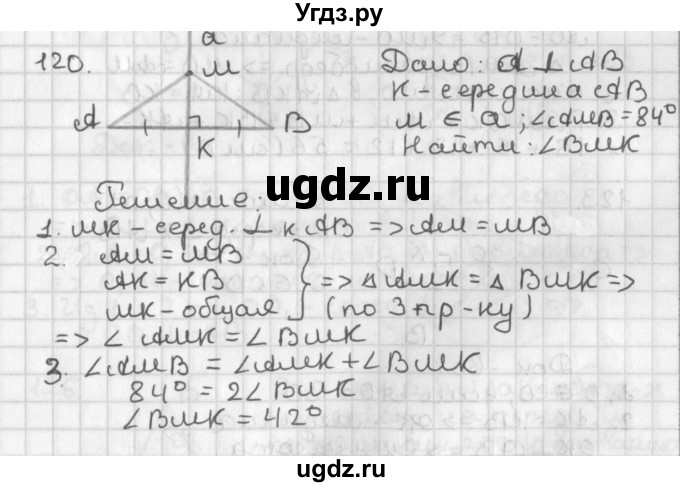 Угдз.ру
120.
a
M
A
B
K
Дано: a ⊥ AB
K - середина AB
M ∈ a; ∠AMB = 84°
Найти: ∠BMK
ugdz.ru
Решение:
1. MK - серед. ⊥ к AB => AM = MB
2. AM = MB
AK = KB
MK - общая
} => △AMK = △BMK =>
(по 3 пр-ку)
=> ∠AMK = ∠BMK
3. ∠AMB = ∠AMK + ∠BMK
84° = 2∠BMK
∠BMK = 42°
ugdz.ru